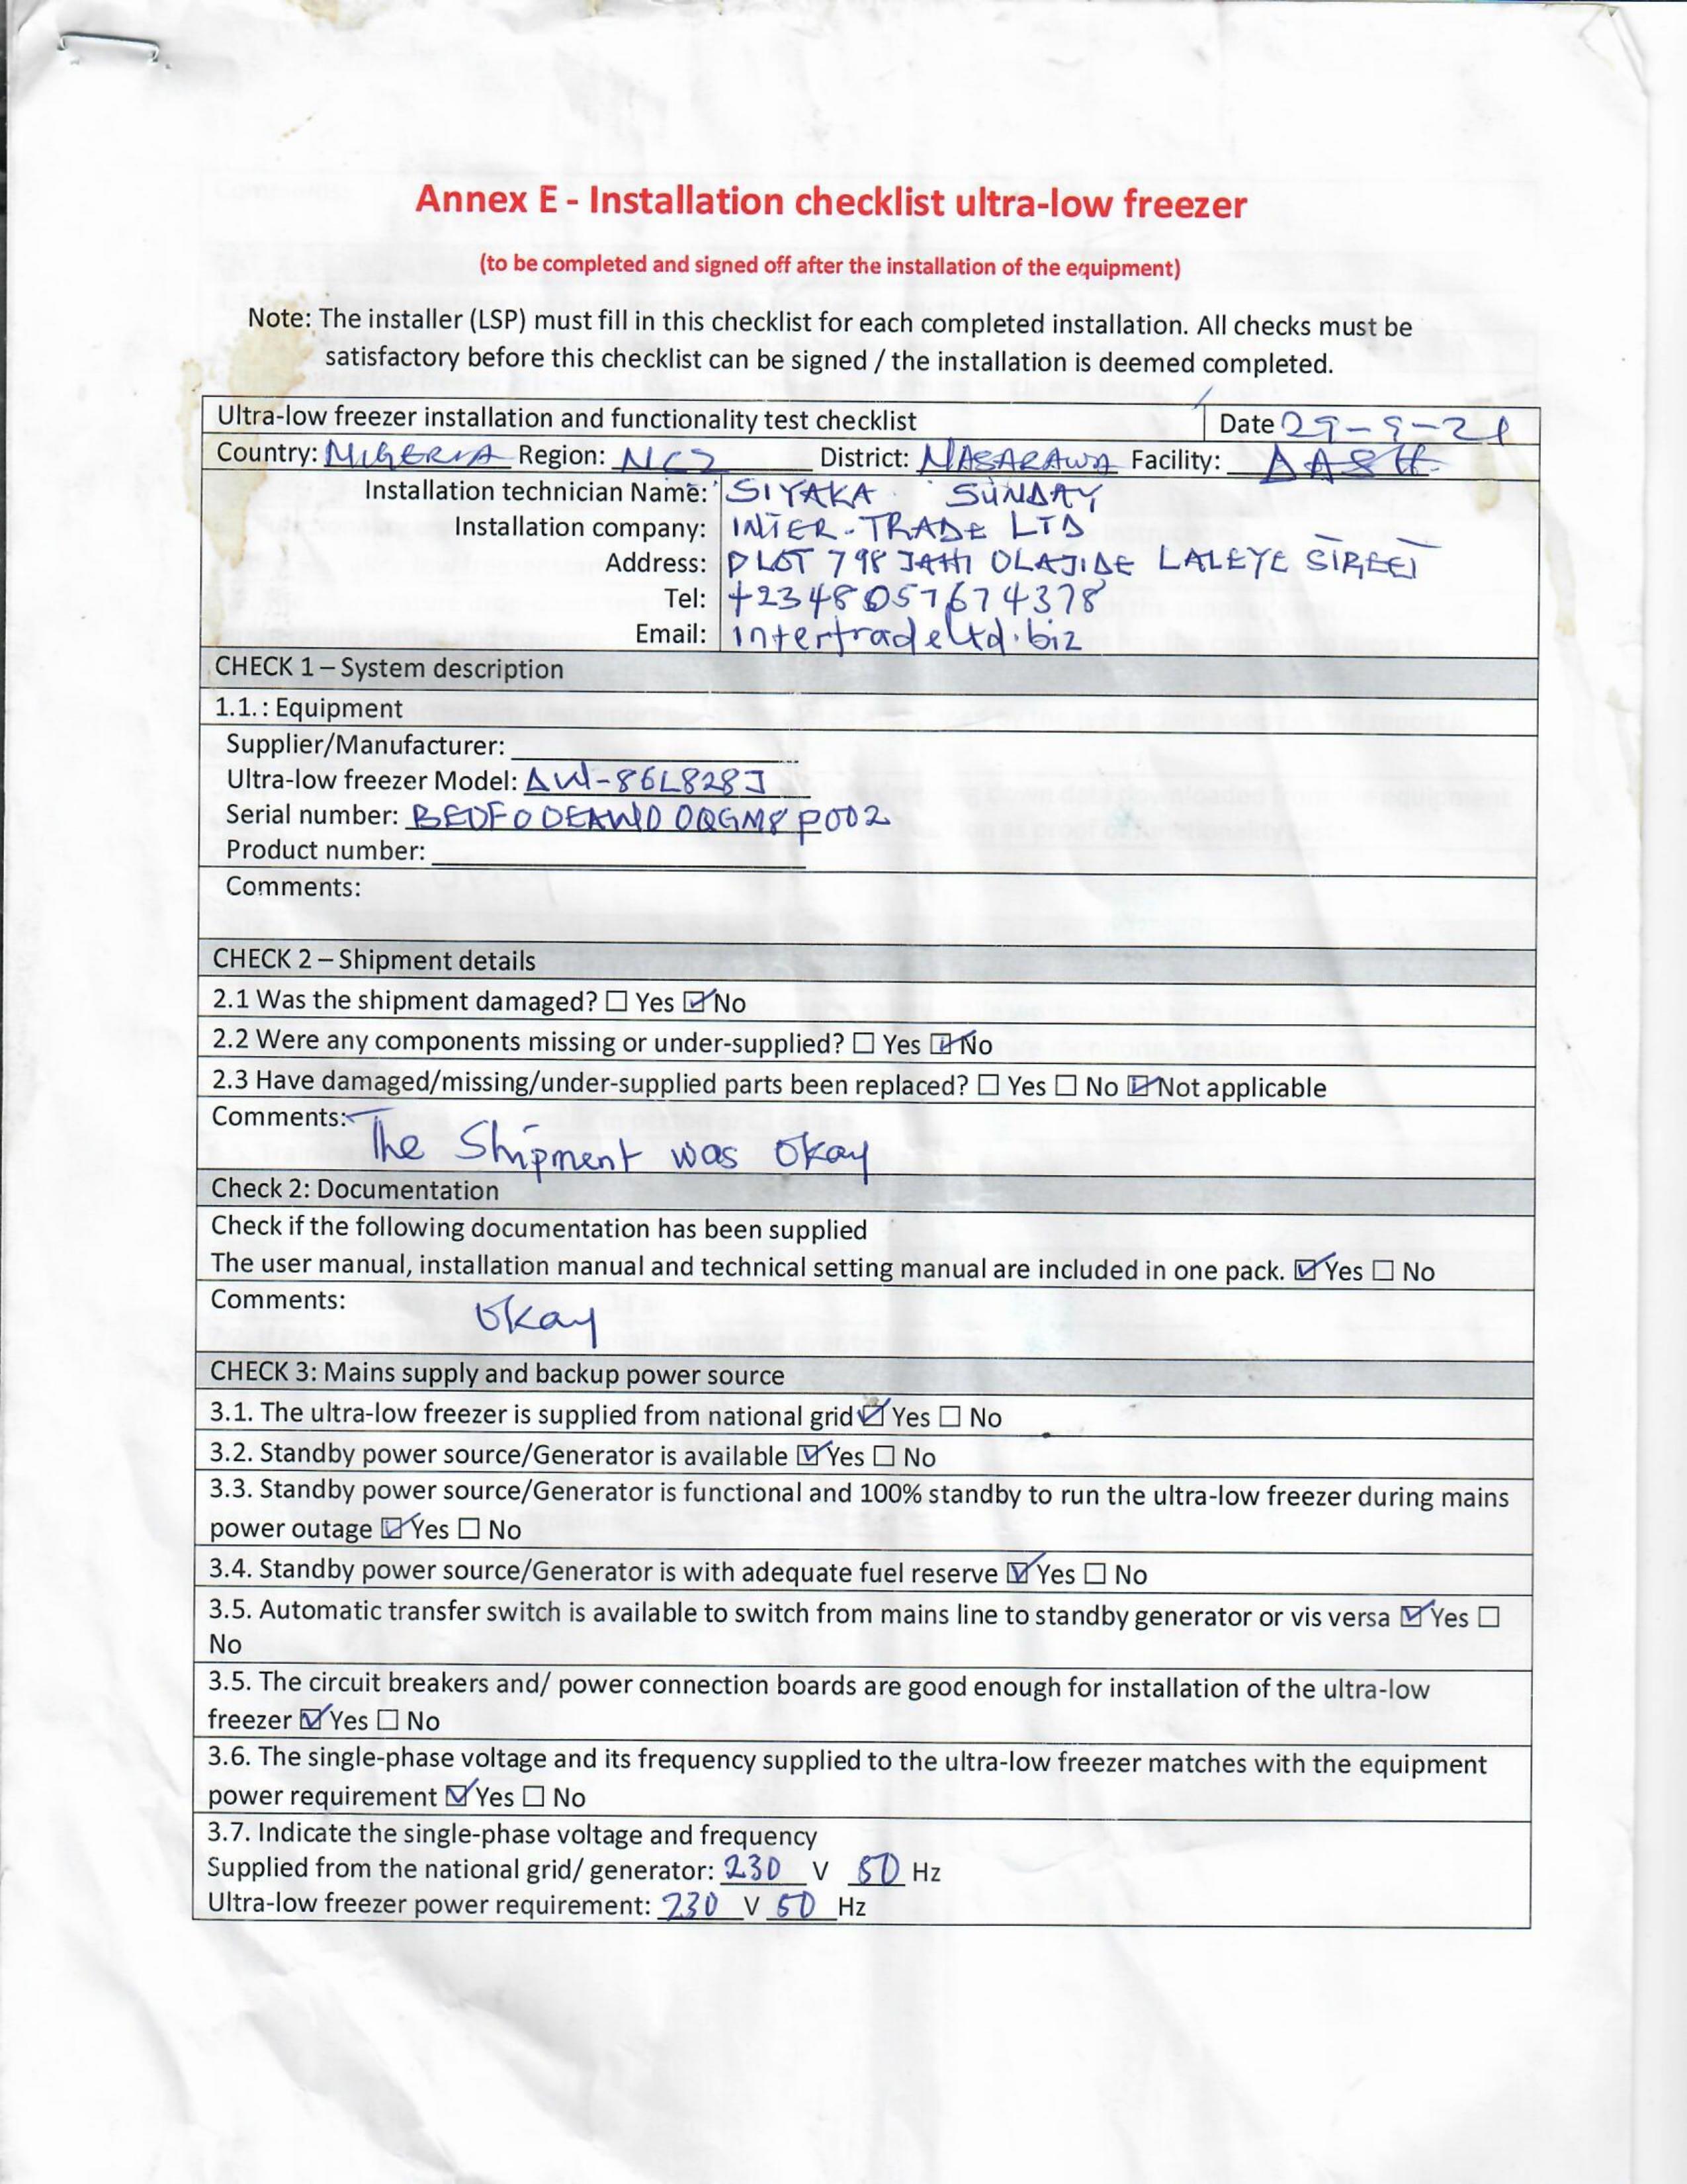 Annex E - Installation checklist ultra-low freezer
(to be completed and signed off after the installation of the equipment)
Note: The installer (LSP) must fill in this checklist for each completed installation. All checks must be
satisfactory before this checklist can be signed / the installation is deemed completed.
Ultra-low freezer installation and functionality test checklist Date 29-9-21
Country: NIGERIA Region: NCZ District: NASARAWA Facility: DASH
Installation technician Name: SIYAKA SUNDAY
Installation company: INTER-TRADE LTD
Address: PLOT 798 JAHI OLAJIDE LALEYE STREET
Tel: +2348057674378
Email: intertradeltd.biz
CHECK 1 – System description
1.1. : Equipment
Supplier/Manufacturer:
Ultra-low freezer Model: DW-86L828J
Serial number: BEDF0DEAWD0QGM8P002
Product number:
Comments:
CHECK 2 – Shipment details
2.1 Was the shipment damaged? ☐ Yes ☑ No
2.2 Were any components missing or under-supplied? ☐ Yes ☑ No
2.3 Have damaged/missing/under-supplied parts been replaced? ☐ Yes ☐ No ☑ Not applicable
Comments: The Shipment was Okay
Check 2: Documentation
Check if the following documentation has been supplied
The user manual, installation manual and technical setting manual are included in one pack. ☑ Yes ☐ No
Comments: Okay
CHECK 3: Mains supply and backup power source
3.1. The ultra-low freezer is supplied from national grid ☑ Yes ☐ No
3.2. Standby power source/Generator is available ☑ Yes ☐ No
3.3. Standby power source/Generator is functional and 100% standby to run the ultra-low freezer during mains
power outage ☑ Yes ☐ No
3.4. Standby power source/Generator is with adequate fuel reserve ☑ Yes ☐ No
3.5. Automatic transfer switch is available to switch from mains line to standby generator or vis versa ☑ Yes ☐
No
3.5. The circuit breakers and/ power connection boards are good enough for installation of the ultra-low
freezer ☑ Yes ☐ No
3.6. The single-phase voltage and its frequency supplied to the ultra-low freezer matches with the equipment
power requirement ☑ Yes ☐ No
3.7. Indicate the single-phase voltage and frequency
Supplied from the national grid/ generator: 230 V 50 Hz
Ultra-low freezer power requirement: 230 V 50 Hz